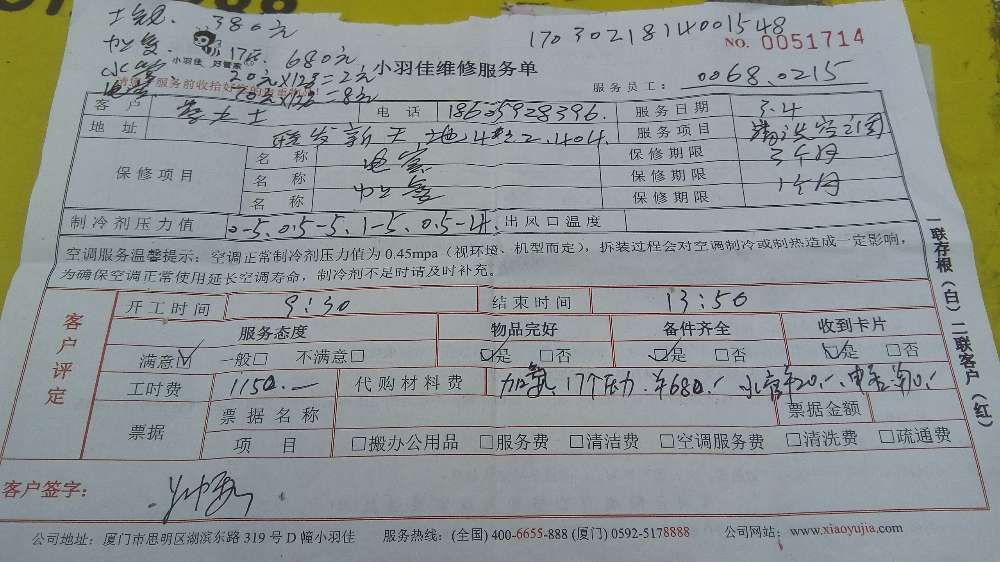 380元
1703021814001548
加氟 17 680元
小羽佳 好管家
NO. 0051714
水管 20元
小羽佳维修服务单
服务前收拾好
服务员工: 0068.0215
客户 李女士 电话 18605928396. 服务日期 3.4
地址 新天地4#22.404. 服务项目
保修项目 名称 电容 保修期限 3个月
名称 加氟 保修期限 1个月
名称 保修期限
制冷剂压力值 0-5、0.5-5、1-5、0.5-4 出风口温度
空调服务温馨提示:空调正常制冷剂压力值为 0.45mpa(视环境、机型而定),拆装过程会对空调制冷或制热造成一定影响,
为确保空调正常使用延长空调寿命,制冷剂不足时请及时补充。
一联存根(白)二联客户(红)
客户评定
开工时间 9:30 结束时间 13:50
服务态度 物品完好 备件齐全 收到卡片
满意☑ 一般□ 不满意□ ☑是 □否 ☑是 □否 ☑是 □否
工时费 1150.— 代购材料费 加氟17个压力¥680.
票据 票据名称 票据金额
项目 □搬办公用品 □服务费 □清洁费 □空调服务费 □清洗费 □疏通费
客户签字:
公司地址:厦门市思明区湖滨东路 319 号 D 幢小羽佳 服务热线:(全国) 400-6655-888 (厦门) 0592-5178888 公司网站:www.xiaoyujia.com